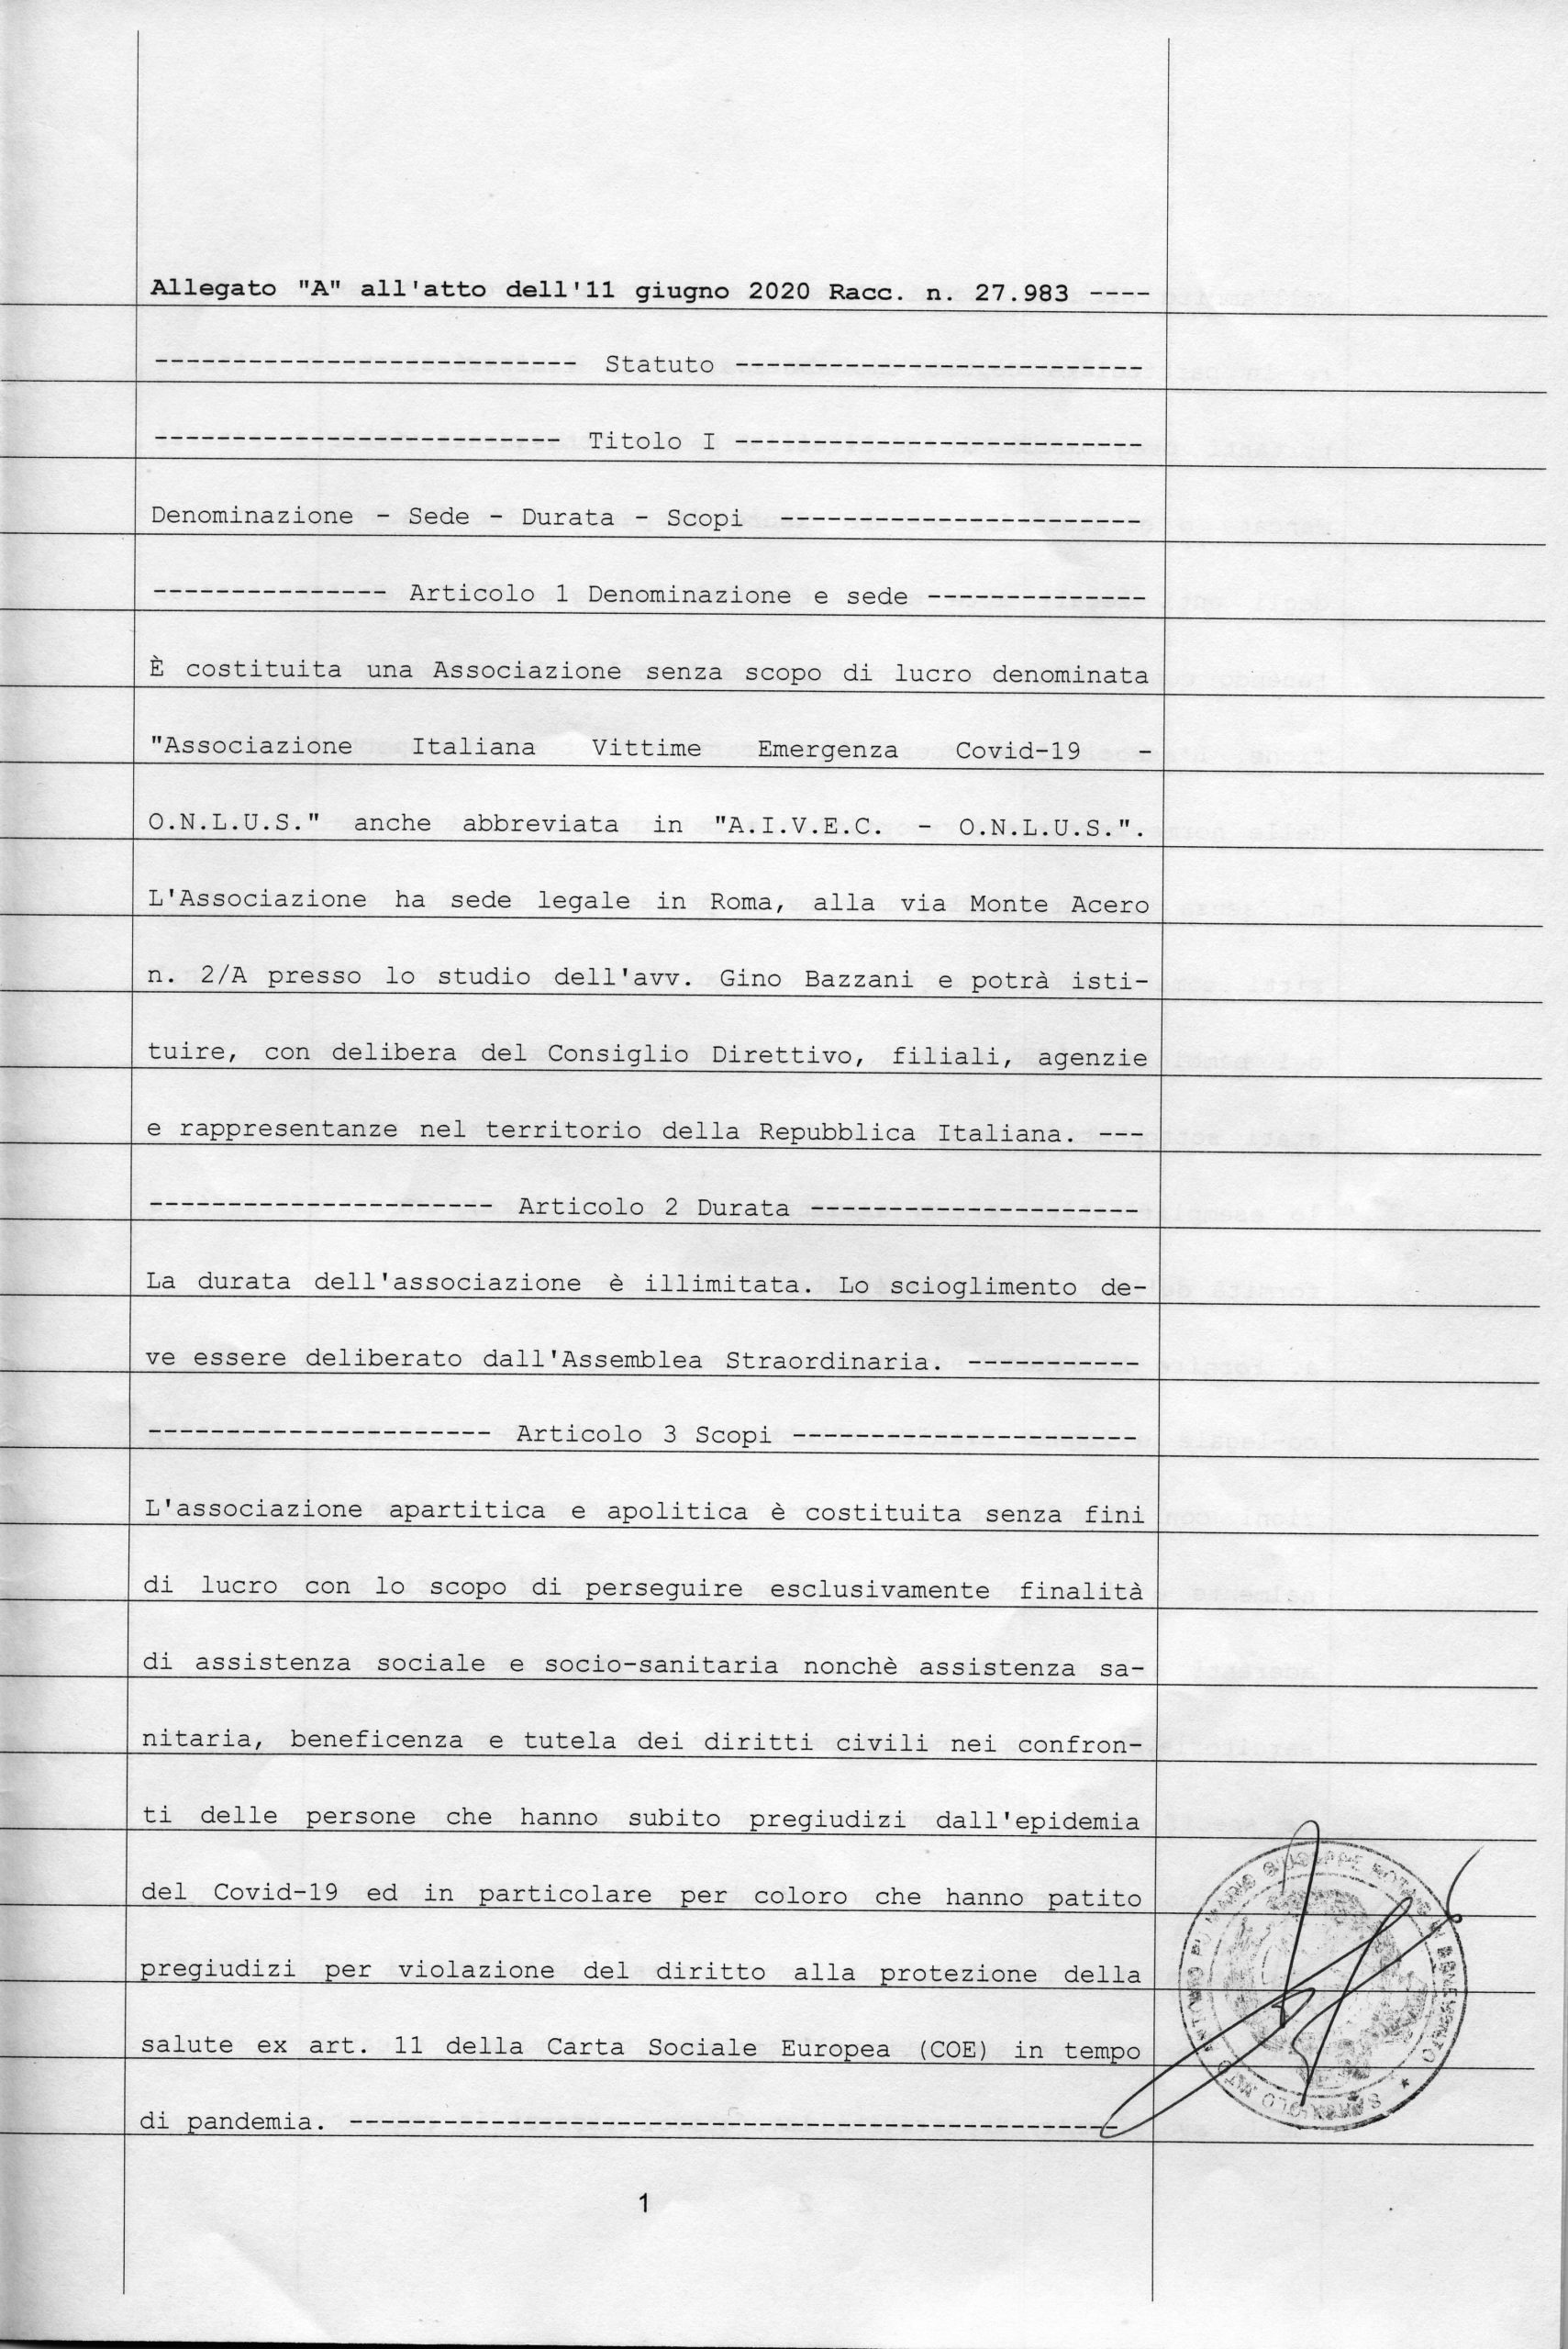 Allegato "A" all'atto dell'11 giugno 2020 Racc. n. 27.983 ----
--------------------------- Statuto --------------------------
-------------------------- Titolo I --------------------------
Denominazione - Sede - Durata - Scopi -----------------------
--------------- Articolo 1 Denominazione e sede --------------
È costituita una Associazione senza scopo di lucro denominata
"Associazione Italiana Vittime Emergenza Covid-19 -
O.N.L.U.S." anche abbreviata in "A.I.V.E.C. - O.N.L.U.S.".
L'Associazione ha sede legale in Roma, alla via Monte Acero
n. 2/A presso lo studio dell'avv. Gino Bazzani e potrà isti-
tuire, con delibera del Consiglio Direttivo, filiali, agenzie
e rappresentanze nel territorio della Repubblica Italiana. ---
---------------------- Articolo 2 Durata ---------------------
La durata dell'associazione è illimitata. Lo scioglimento de-
ve essere deliberato dall'Assemblea Straordinaria. -----------
---------------------- Articolo 3 Scopi ----------------------
L'associazione apartitica e apolitica è costituita senza fini
di lucro con lo scopo di perseguire esclusivamente finalità
di assistenza sociale e socio-sanitaria nonchè assistenza sa-
nitaria, beneficenza e tutela dei diritti civili nei confron-
ti delle persone che hanno subito pregiudizi dall'epidemia
del Covid-19 ed in particolare per coloro che hanno patito
pregiudizi per violazione del diritto alla protezione della
salute ex art. 11 della Carta Sociale Europea (COE) in tempo
di pandemia. -------------------------------------------------
1
GIUSEPPE NOTAIO IN BENEVENTO